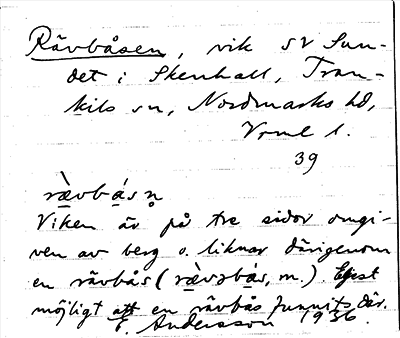 Rävbåsen, vik SV Sun-
det i Skenhall, Tran-
kils sn, Nordmarks hd,
Vrml l.
39
rὲvbás n̥
Viken är på tre sidor omgi-
ven av berg o. liknar därigenom
en rävbås (rὲvbás, m.). Ejest
möjligt att en rävbås funnits där.
E. Andersson 1936.